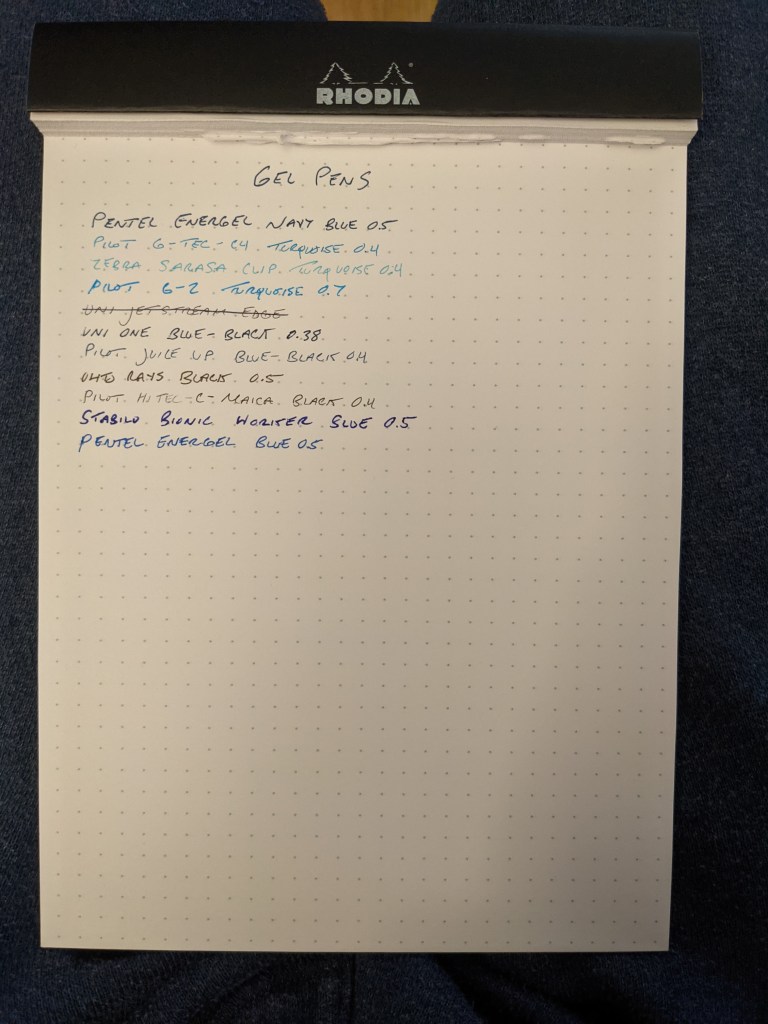 RHODIA
GEL PENS
PENTEL ENERGEL NAVY BLUE 0.5
PILOT G-TEC-C4 TURQUOISE 0.4
ZEBRA SARASA CLIP TURQUOISE 0.4
PILOT G-2 TURQUOISE 0.7
UNI JETSTREAM EDGE
UNI ONE BLUE-BLACK 0.38
PILOT JUICE UP BLUE-BLACK 0.4
OHTO RAYS BLACK 0.5
PILOT HITEC-C-MAICA BLACK 0.4
STABILO BIONIC WORKER BLUE 0.5
PENTEL ENERGEL BLUE 0.5